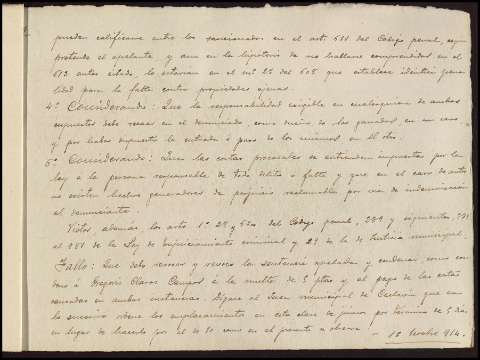 pueden calificarse entre los sancionados en el artº 611 del Código penal, segun
pretende el apelante, y aun en la hipótesis de no hallarse comprendidos en el
613 antes citado, lo estarian en el nº 2º del 605 que establece idéntica pena-
lidad para la falta contra propiedades ajenas.
4º Considerando: Que la responsabilidad exigible en cualquiera de ambos
supuestos debe recaer en el denunciado como dueño de los ganados en un caso,
y por haber supuesto la entrada ó paso de los mismos en el otro.
5º Considerando: Que las costas procesales se entienden impuestas por la
ley á la persona responsable de todo delito ó falta y que en el caso de autos
no existen hechos generadores de perjuicio reclamables por via de indemnización
al denunciante.
Vistos, además, los artos 1º 28 y 620 del Código penal, 239 y siguientes,
al 981 de la Ley de Enjuiciamiento criminal y 29 de la de Justicia municipal.
Fallo: Que debo revocar y revoco la sentencia apelada y condenar, como con-
deno á Gregorio Claros Campos á la multa de 5 ptas y al pago de las costas
causadas en ambas instancias. Dígase al Juez municipal de que en
lo sucesivo observe los emplazamientos en esta clase de juicios por término de 5 días
en lugar de hacerlo por el de 10 como en el presente se observa. - 18 Octubre 914.